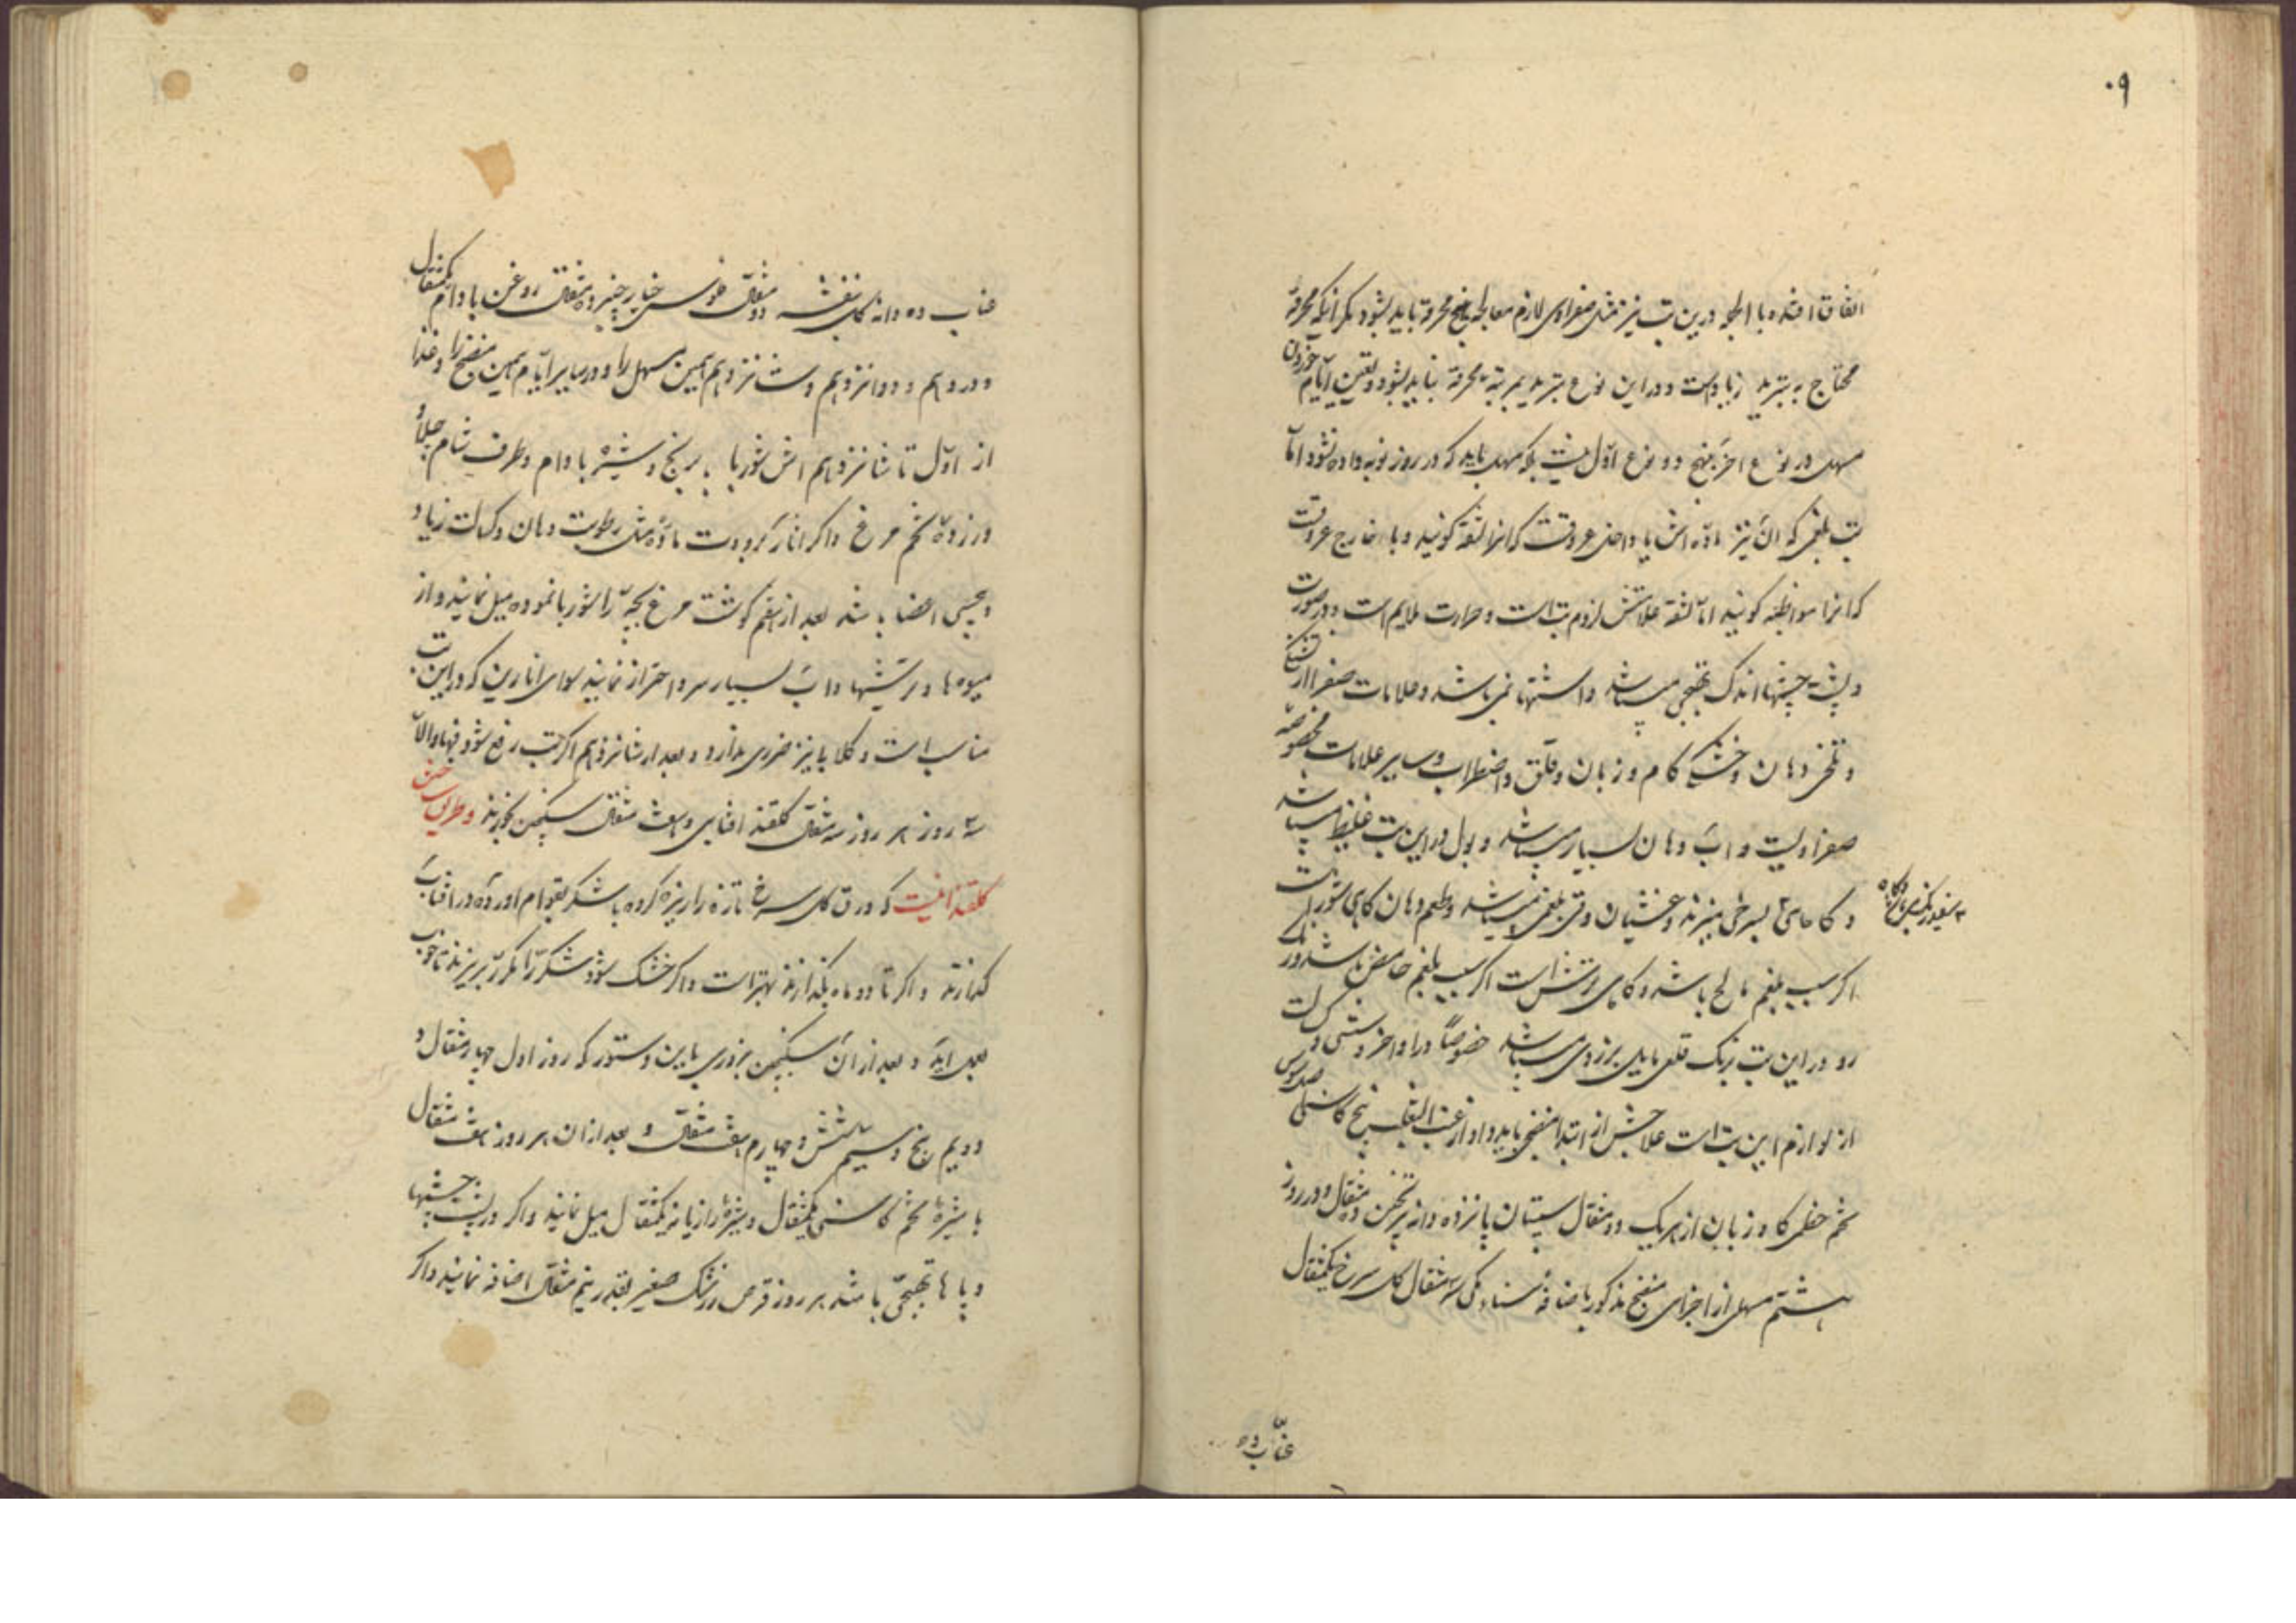 ۹۰
اتفاق افتد و با الجمله درین تب نیز مثل صفراوی لازم معالجه محرقه باید بشود مگر اینکه محرقه
محتاج به تبرید زیاد است و در این نوع تبرید بمرتبه محرقه نباید بشود و تعیین ایام خوردن
مسهل در نوع اخر بنهج دو نوع اول نیست بلکه مسهل باید که در روز نوبه داده نشود اما
تب بلغمی که ان نیز ماده اش یا داخل عروقست که انرا لثقه گویند و یا خارج عروقست
که انرا مواظبه گویند اما لثقه علامتش لزوم تب است و حرارت ملایم است و در صورت
و پشت چشمها اندک تهبجی میباشد و اشتها نمی باشد و علامات صفرا از تشنگی
و تلخی دهان و خشکی کام و زبان و قلق و اضطراب و سایر علامات مخصوصه
صفرا نیست و اب دهان بسیار میباشد و بول در این تب غلیظ میباشد
و گاهی بسرخی میزند و غشیان و قی بلغمی میباشد و طعم دهان گاهی شور است
اگر سبب بلغم مالح باشد و گاهی ترش است اگر سبب بلغم حامض باشد و رنگ
رو در این تب برنگ قلعی مایل بزردی میباشد خصوصا در اواخر و سستی و کسالت
از لوازم این تب است علاجش از ابتدا منضجی باید داد از عنب الثعلب بیخ کاسنی اصل سوس
تخم خطمی گاو زبان از هر یک دو مثقال سپستان پانزده دانه ترنجبین ده مثقال و در روز
هشتم مسهلی از اجزای منضج مذکور باضافه سناء مکی سه مثقال گل سرخ یکمثقال
عناب ده
عناب ده دانه گل بنفشه دو مثقال فلوس خیار چنبر ده مثقال روغن بادام یکمثقال
و در دهم و دوانزدهم و شانزدهم همین مسهل را و در سایر ایام همین منضج را و غذا
از اول تا شانزدهم اش شوربا با برنج و شیره بادام و طرف شام چلاو
و زرده تخم مرغ و اگر اثار برودت ماده مثل رطوبت دهان و کسالت زیاد
و بیحسی اعضا باشد بعد از هفتم گوشت مرغ بچه را شوربا نموده میل نمایند و از
میوه ها و ترشیها و اب بسیار سرد احتراز نمایند سوای انارین که در این تب
مناسب است و گلابی نیز ضرری ندارد و بعد از شانزدهم اگر تب رفع شود فبها و الا
سه روز هر روز سه مثقال گلقند افتابی و هفت مثقال سکنجبین بخورند و طریق ساختن
گلقند اینست که ورق گل سرخ تازه را ریزه کرده با شکر بقوام اورده در افتاب
گذارند و اگر تا دو ماه بگذارند بهتر است و اگر خشک شود شکر را مکرر بریزند تا خوب
بعمل اید و بعد از ان سکنجبین بزوری باین دستور که روز اول چهار مثقال و
دویم پنج و سیم شش و چهارم هفت مثقال و بعد از ان هر روز هفت مثقال
با شیره تخم کاسنی یکمثقال و شیره رازیانه یکمثقال میل نمایند و اگر در پشت چشمها
و پاها تهبجی باشد هر روز قرص زرشک صغیر بقدر نیم مثقال اضافه نمایند و اگر